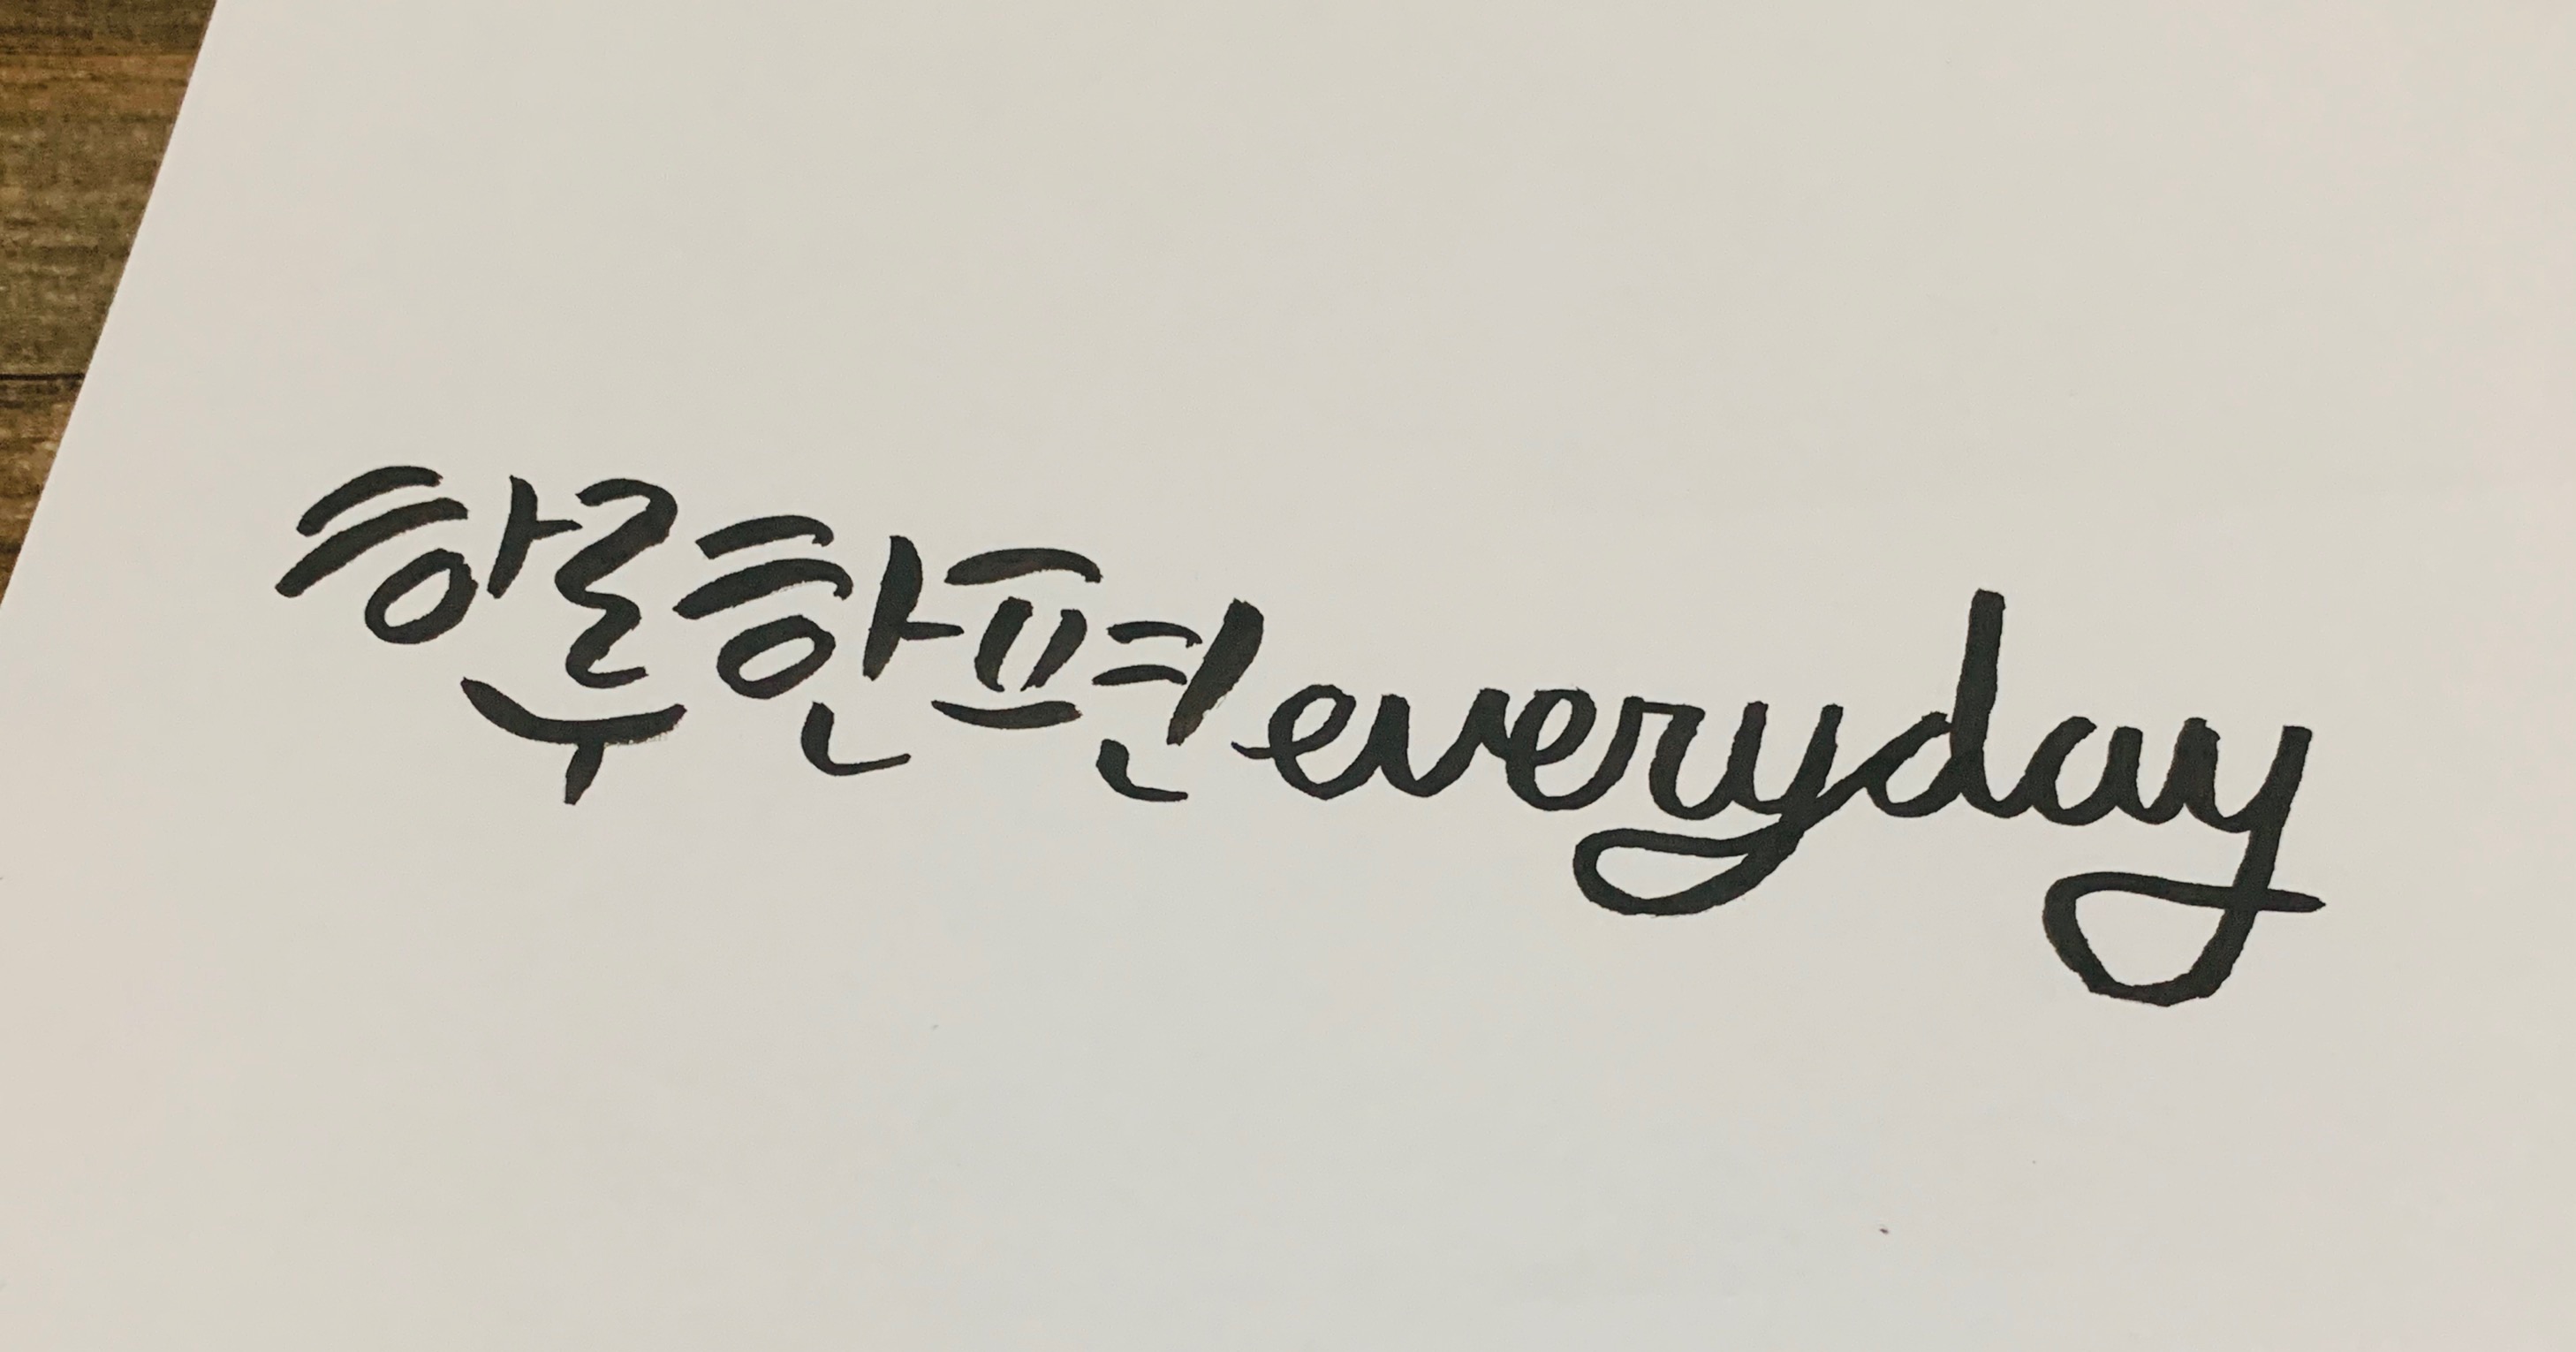 하루한편everyday